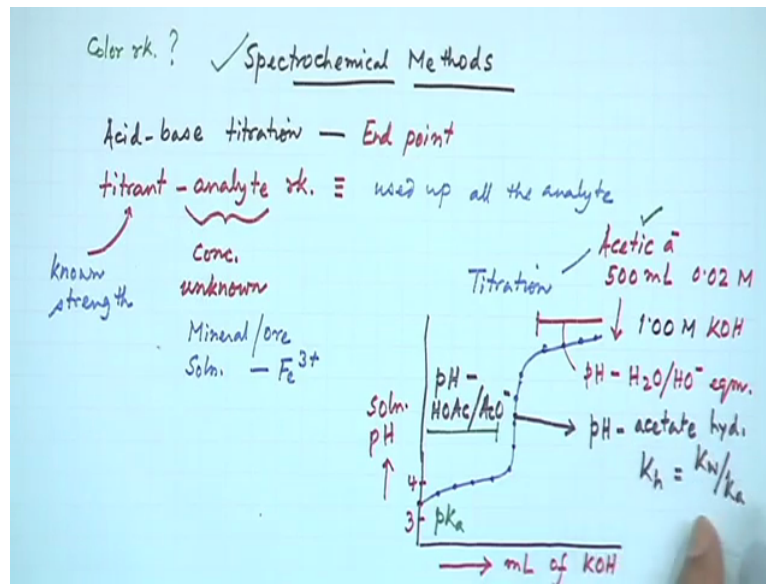 Color rk. ? ✓ Spectrochemical Methods
Acid-base titration — End point
titrant - analyte rk. ≡ used up all the analyte
known strength
Conc.
unknown
Mineral/ore
Soln. — Fe³⁺
Titration
Acetic a⁻
500 mL 0.02 M
1.00 M KOH
pH - H₂O/HO⁻ eqm.
pH - acetate hyd.
Kh = Kw/Ka
pH -
HOAc/AcO⁻
Soln.
pH
4
3
pKa
mL of KOH